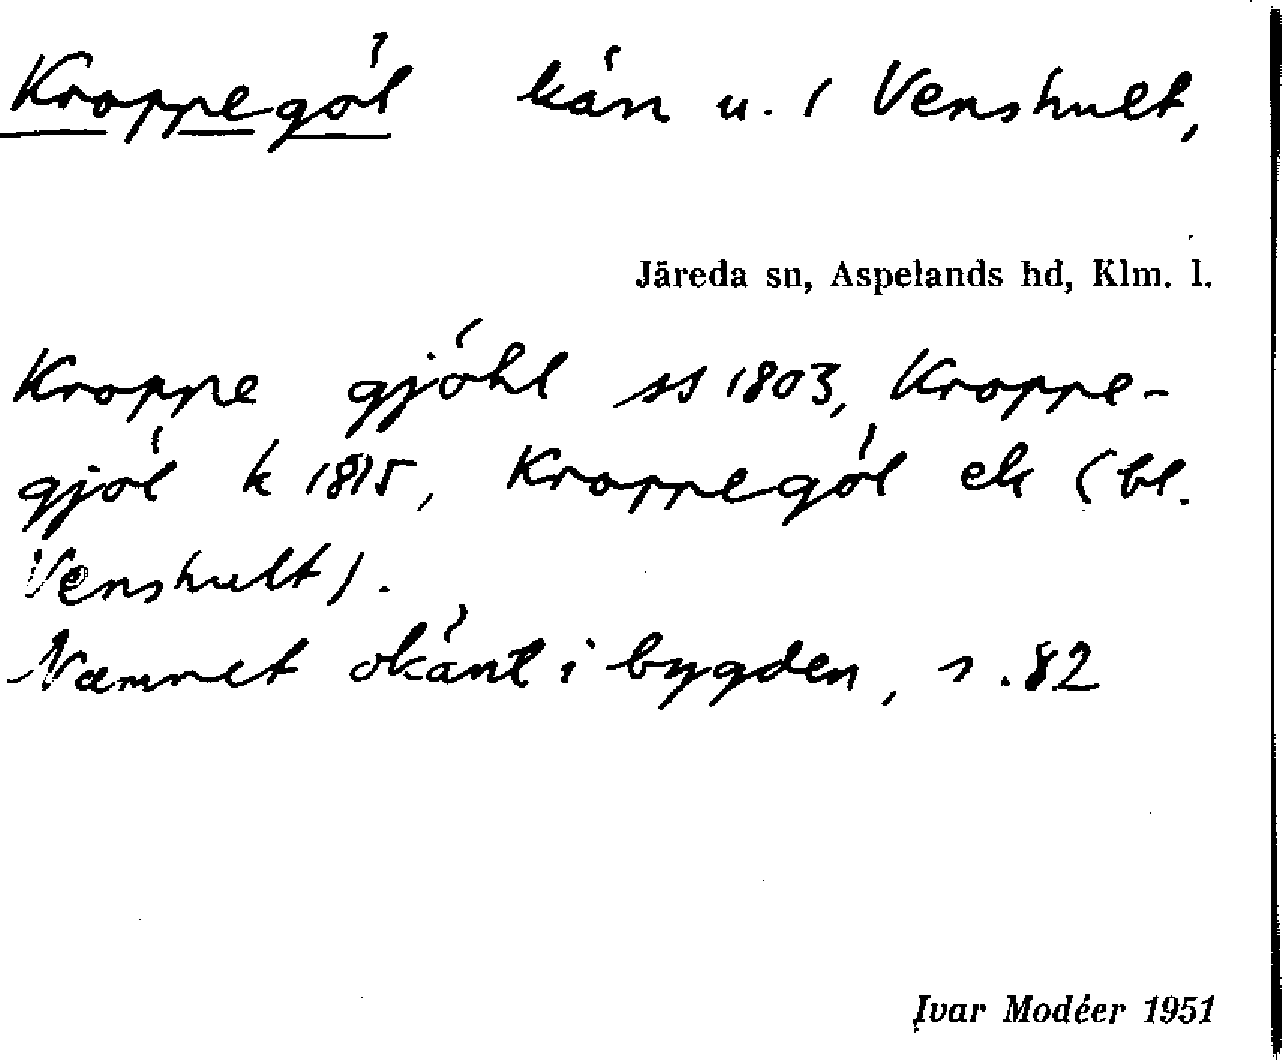 Kroppegöl kärr u. / Venshult,
Järeda sn, Aspelands hd, Klm. l.
Kroppe gjöhl ss 1803, Kroppe-
gjöl k 1815, Kroppegöl ek (bl.
Venshult).
Namnet okänt i bygden, s. 82
Ivar Modéer 1951